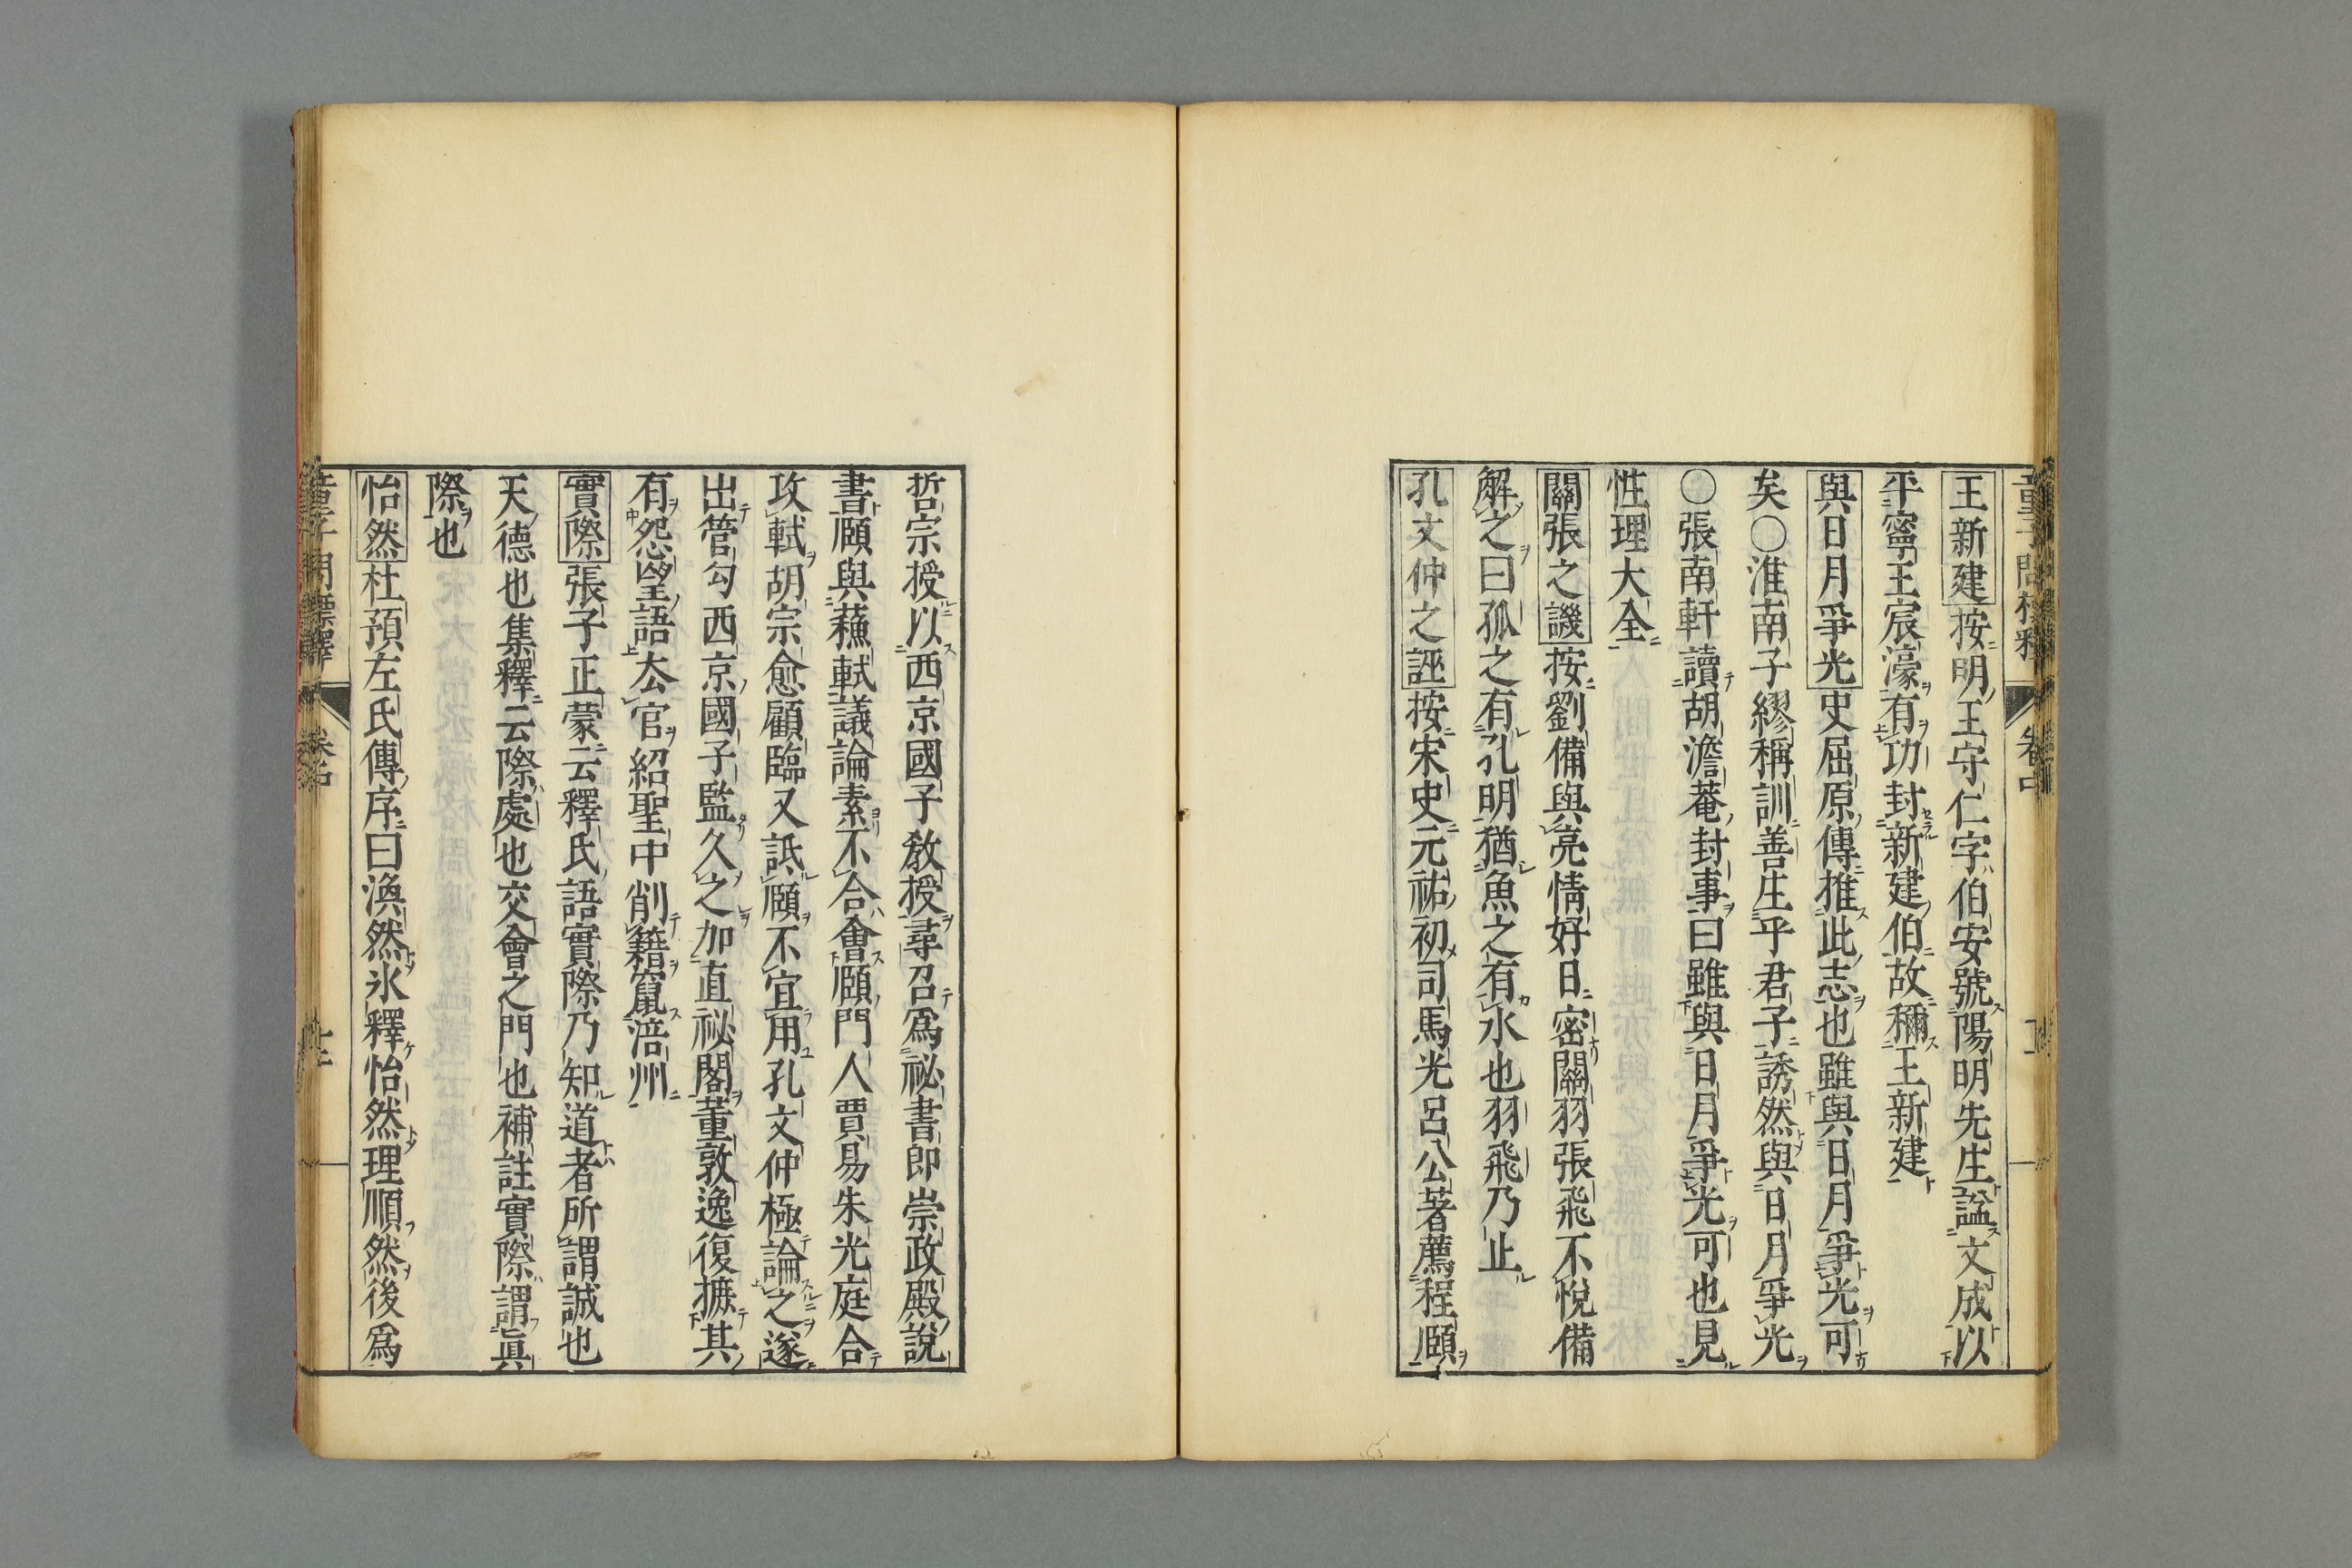 王新建按明王守仁字伯安號陽明先生諡文成以
平寧王宸濠有功封新建伯故稱王新建
與日月爭光史屈原傳推此志也雖與日月爭光可
矣○淮南子繆稱訓善庄乎君子誘然與日月爭光
○張南軒讀胡澹菴封事曰雖與日月爭光可也見
性理大全
關張之譏按劉備與亮情好日密關羽張飛不悅備
解之曰孤之有孔明猶魚之有水也羽飛乃止
孔文仲之誣按宋史元祐初司馬光呂公著薦程頤
哲宗授以西京國子教授尋召爲祕書郎崇政殿說
書頤與蘓軾議論素不合會頤門人賈易朱光庭合
攻軾胡宗愈顧臨又詆頤不宜用孔文仲極論之遂
出管勾西京國子監久之加直祕閣董敦逸復摭其
有怨望語去官紹聖中削籍竄涪州
實際張子正蒙云釋氏語實際乃知道者所謂誠也
天德也集釋云際處也交會之門也補註實際謂眞
際也
怡然杜預左氏傳序曰渙然氷釋怡然理順然後爲
童子問標釋 卷中